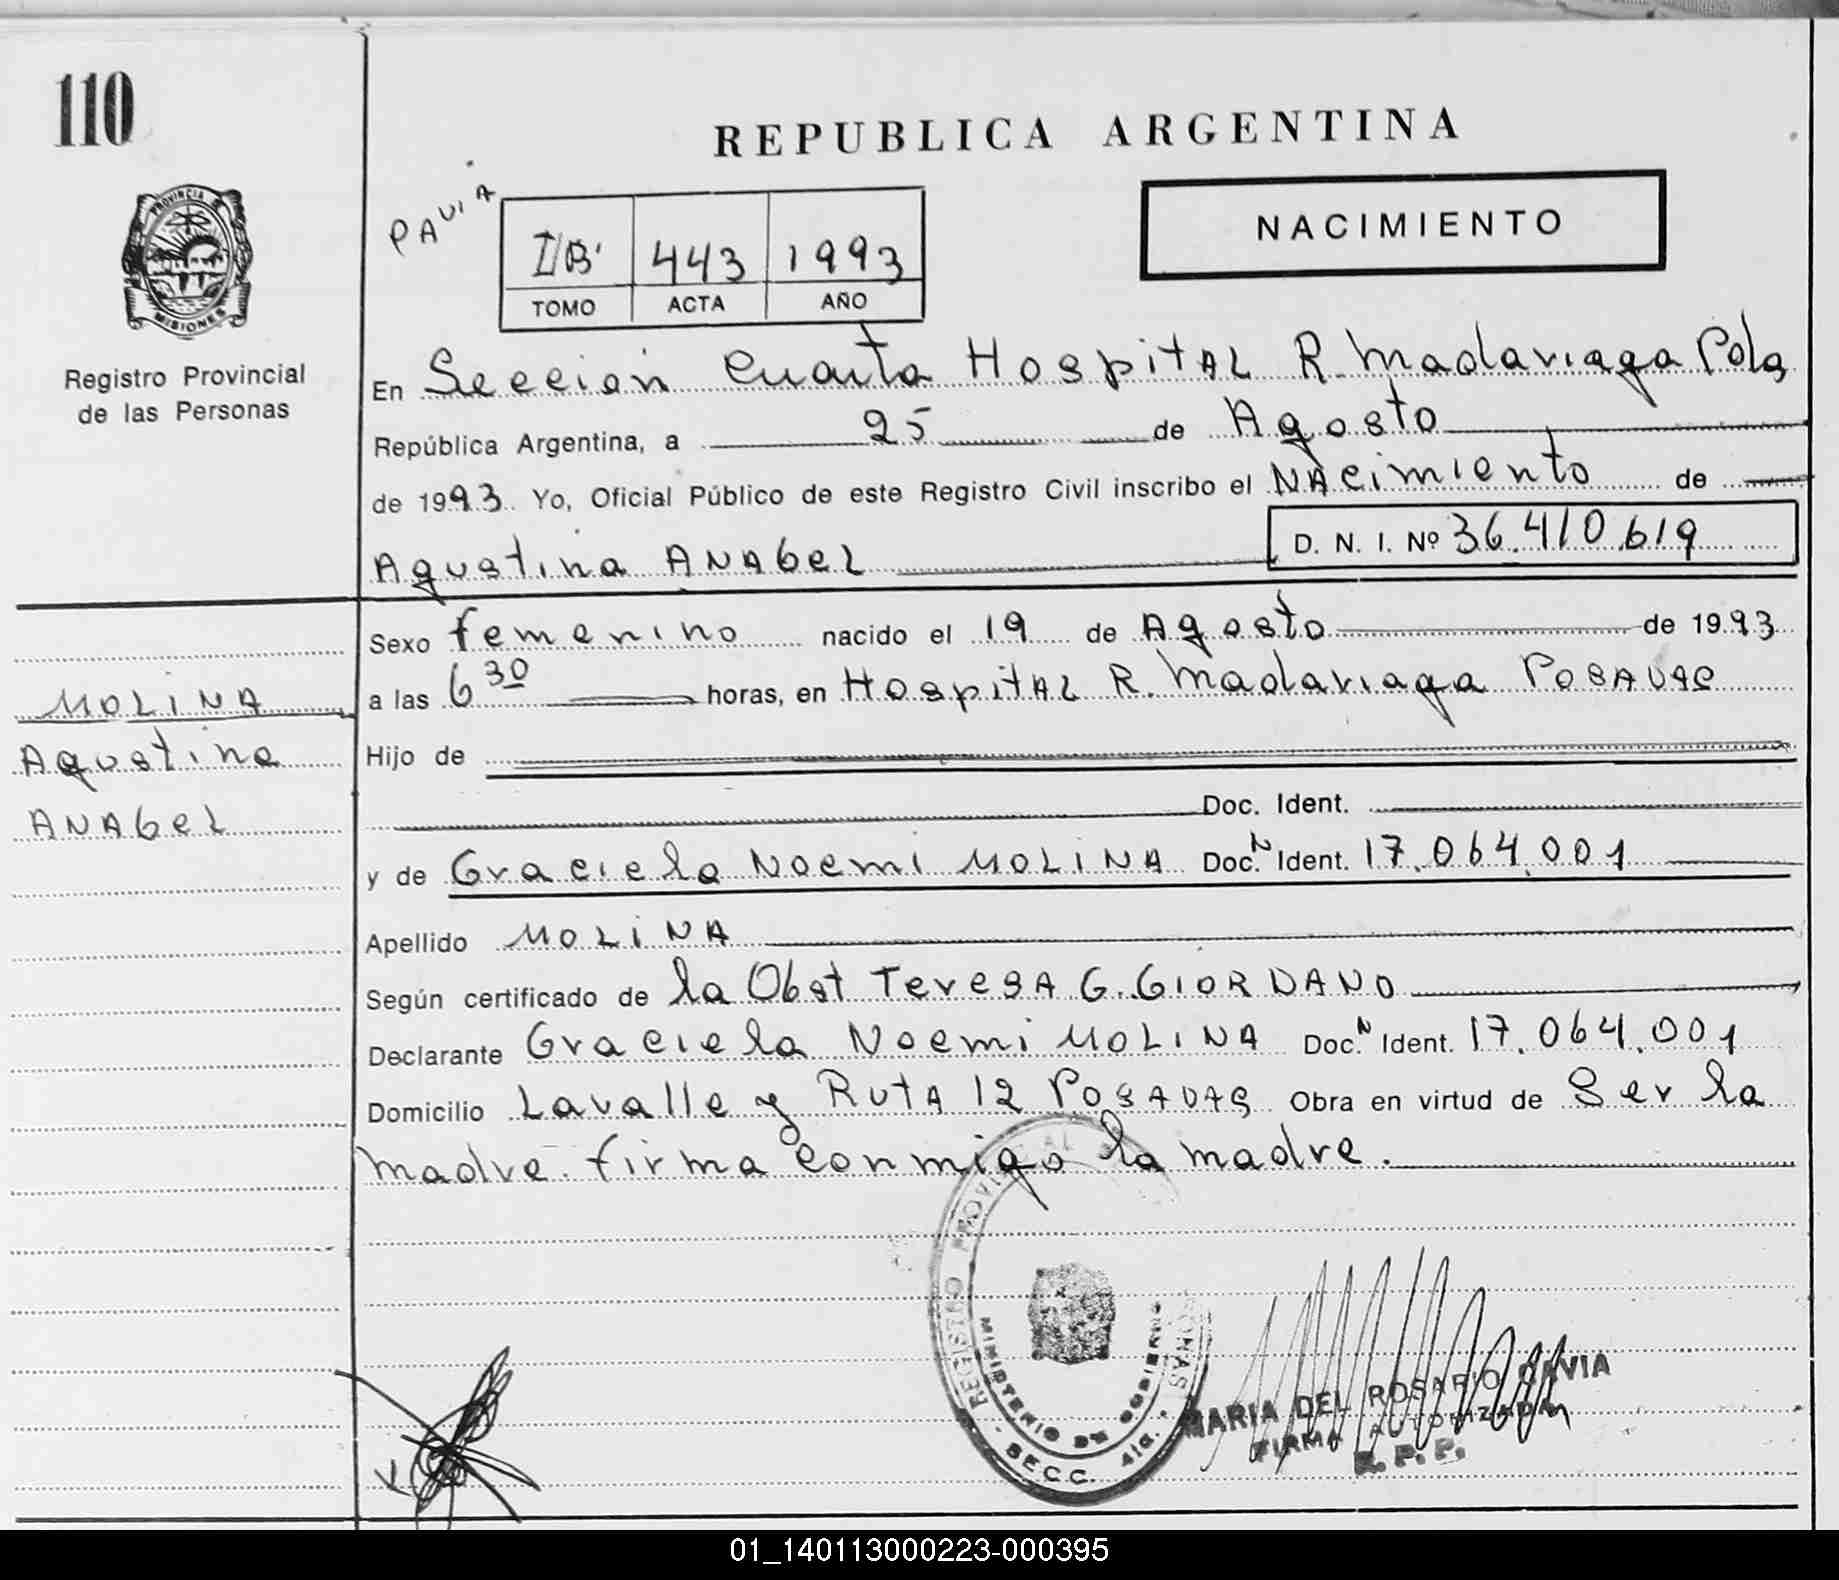 110
REPUBLICA ARGENTINA
PAVIA
I/B' 443 1993
TOMO ACTA AÑO
NACIMIENTO
PROVINCIA DE
MISIONES
Registro Provincial
de las Personas
En Sección Cuarta Hospital R. Madariaga Pdas
República Argentina, a 25 de Agosto
de 1993. Yo, Oficial Público de este Registro Civil inscribo el NAcimiento de
Agustina ANAbel D. N. I. Nº 36.410.619
Sexo femenino nacido el 19 de Agosto de 1993
a las 6 30 horas, en Hospital R. Madariaga POSADAS
Hijo de
Doc. Ident.
y de Graciela Noemi MOLINA Doc. N Ident. 17.064.001
Apellido MOLINA
Según certificado de la Obst TeresA G. GIORDANO
Declarante Graciela Noemi MOLINA Doc. N Ident. 17.064.001
Domicilio Lavalle y RUTA 12 POSADAS Obra en virtud de Ser la
madre. firma conmigo la madre.
MOLINA
Agustina
ANAbel
REGISTRO PROVINCIAL
MINISTERIO DE GOBIERNO
SECC. 4ta.
MARIA DEL ROSARIO PAVIA
FIRMA AUTORIZADA
R. P. P.
01_140113000223-000395